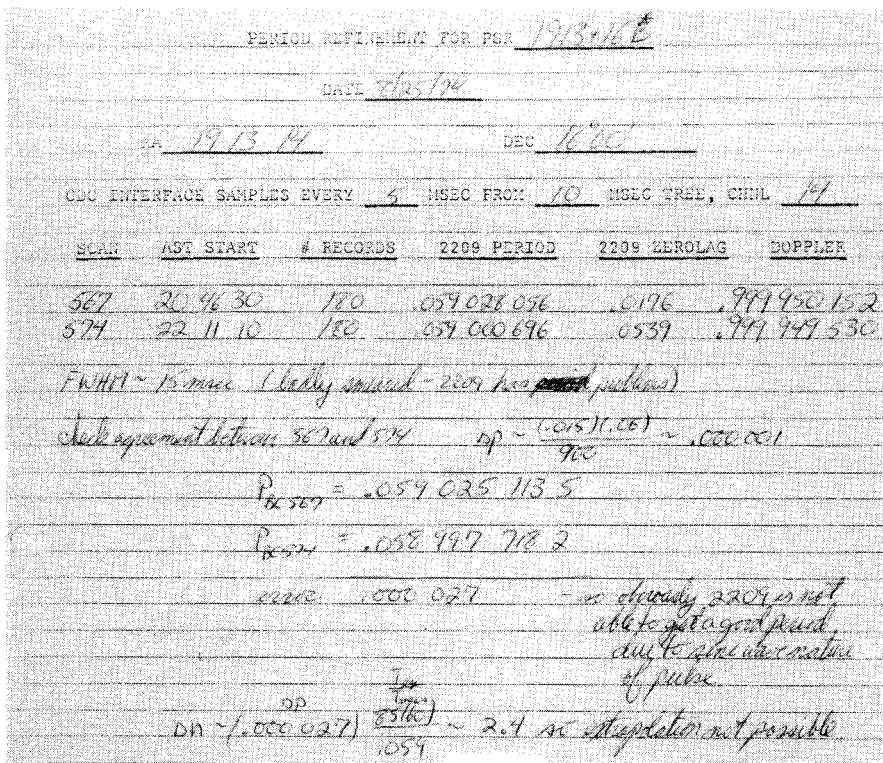 PERIOD REFINEMENT FOR PSR 1913+16
DATE 8/25/74
RA 19 13 14 DEC 16°00'
CDC INTERFACE SAMPLES EVERY 5 MSEC FROM 10 MSEC TREE, CHNL 14
SCAN AST START # RECORDS 2209 PERIOD 2209 ZEROLAG DOPPLER
567 20 46 30 180 .059 028 056 .0176 .999 950 152
574 22 11 10 180 .059 000 696 .0539 .999 949 530
FWHM ~ 15 msec (badly smeared - 2209 has problems)
check agreement between 567 and 574 ΔP ~ (.015)(.06) / 900 ~ .000 001
P BC 567 = .059 025 113 5
P BC 574 = .058 997 718 2
error .000 027 - so obviously 2209 is not
able to get a good period
due to sine wave nature
of pulse
ΔP
Δn ~ (.000 027) 85(60) / .059 ~ 2.4 so extrapolation not possible.